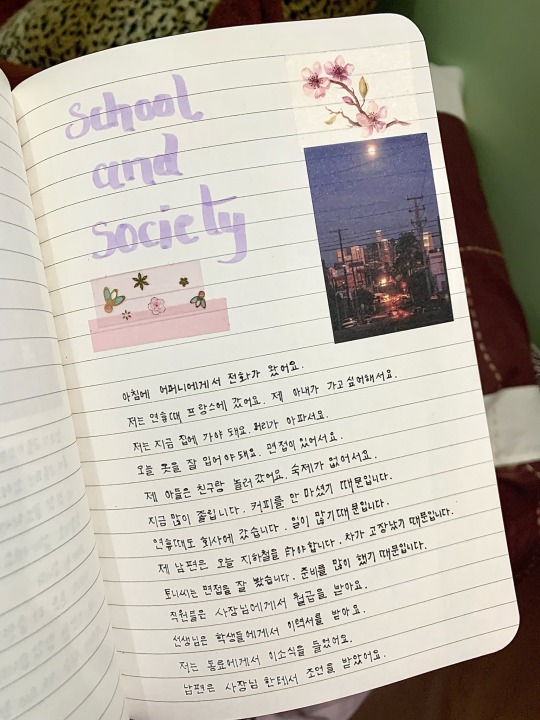 School
and
Society
아침에 어머니에게서 전화가 왔어요.
저는 연휴때 프랑스에 갔어요. 제 아내가 가고 싶어해서요.
저는 지금 집에 가야 돼요. 머리가 아파서요.
오늘 옷을 잘 입어야 돼요. 면접이 있어서요.
제 아들은 친구랑 놀러 갔어요. 숙제가 없어서요.
지금 많이 졸립니다. 커피를 안 마셨기 때문입니다.
연휴때도 회사에 갔습니다. 일이 많기 때문입니다.
제 남편은 오늘 지하철을 타야합니다. 차가 고장났기 때문입니다.
토니씨는 면접을 잘 봤습니다. 준비를 많이 했기 때문입니다.
직원들은 사장님에게서 월급을 받아요.
선생님은 학생들에게서 이력서를 받아요.
저는 동료에게서 이소식을 들었어요.
남편은 사장님 한테서 조언을 받았어요.